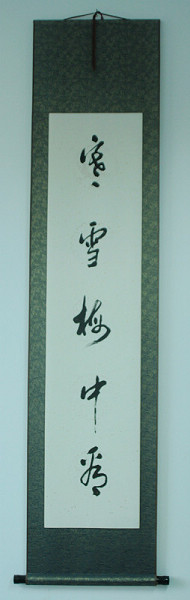 寒雪梅中尽